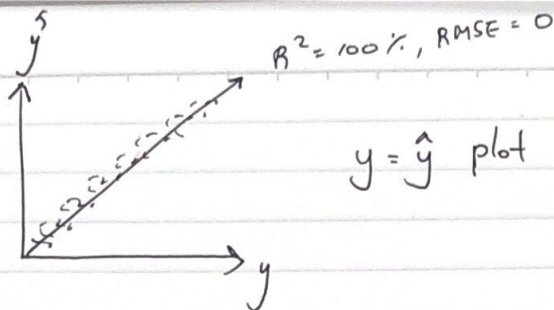 ŷ
R² = 100%, RMSE = 0
y = ŷ plot
y